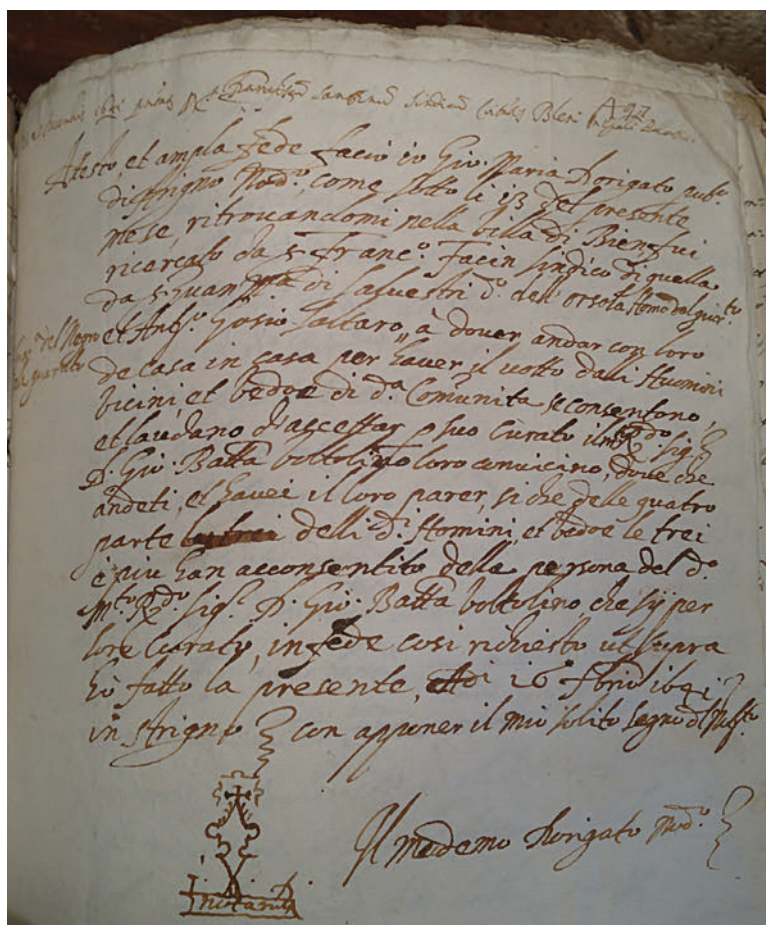 Franciscus Sindicus Bleni
Attesto, et ampla fede faccio io Gio: Maria Rorigato
di Strigno Nod.º, come sotto li 13 del presente
mese, ritrovandomi nella villa di Bien, fui
ricercato da s. Franc.º Facin Sindico di quella
da s. di Salvestri d.º dell'Orsola Homo
del Negro et Ant.º Gosio Saltaro, à dover andar con loro
de casa in casa per haver il votto dalli Huomini
vicini, et vedoe di d.ª Comunita se consentono,
et laudano d'accettar p suo Curato il sig.
D. Gio: Batta boltolino loro convicino, dove che
andeti, et havei il loro parer, si che delle quatro
parte delli d.i Homini, et vedoe le trei
è piu han acconsentito della persona del d.º
M.to R.do Sig.r D. Gio: Batta boltolino che sij per
loro Curato, in fede cosi richiesto ut supra
hò fatto la presente, Adi 16 1641
in Strigno con apponer il mio solito segno del
Il medemo Rorigato Nod.º